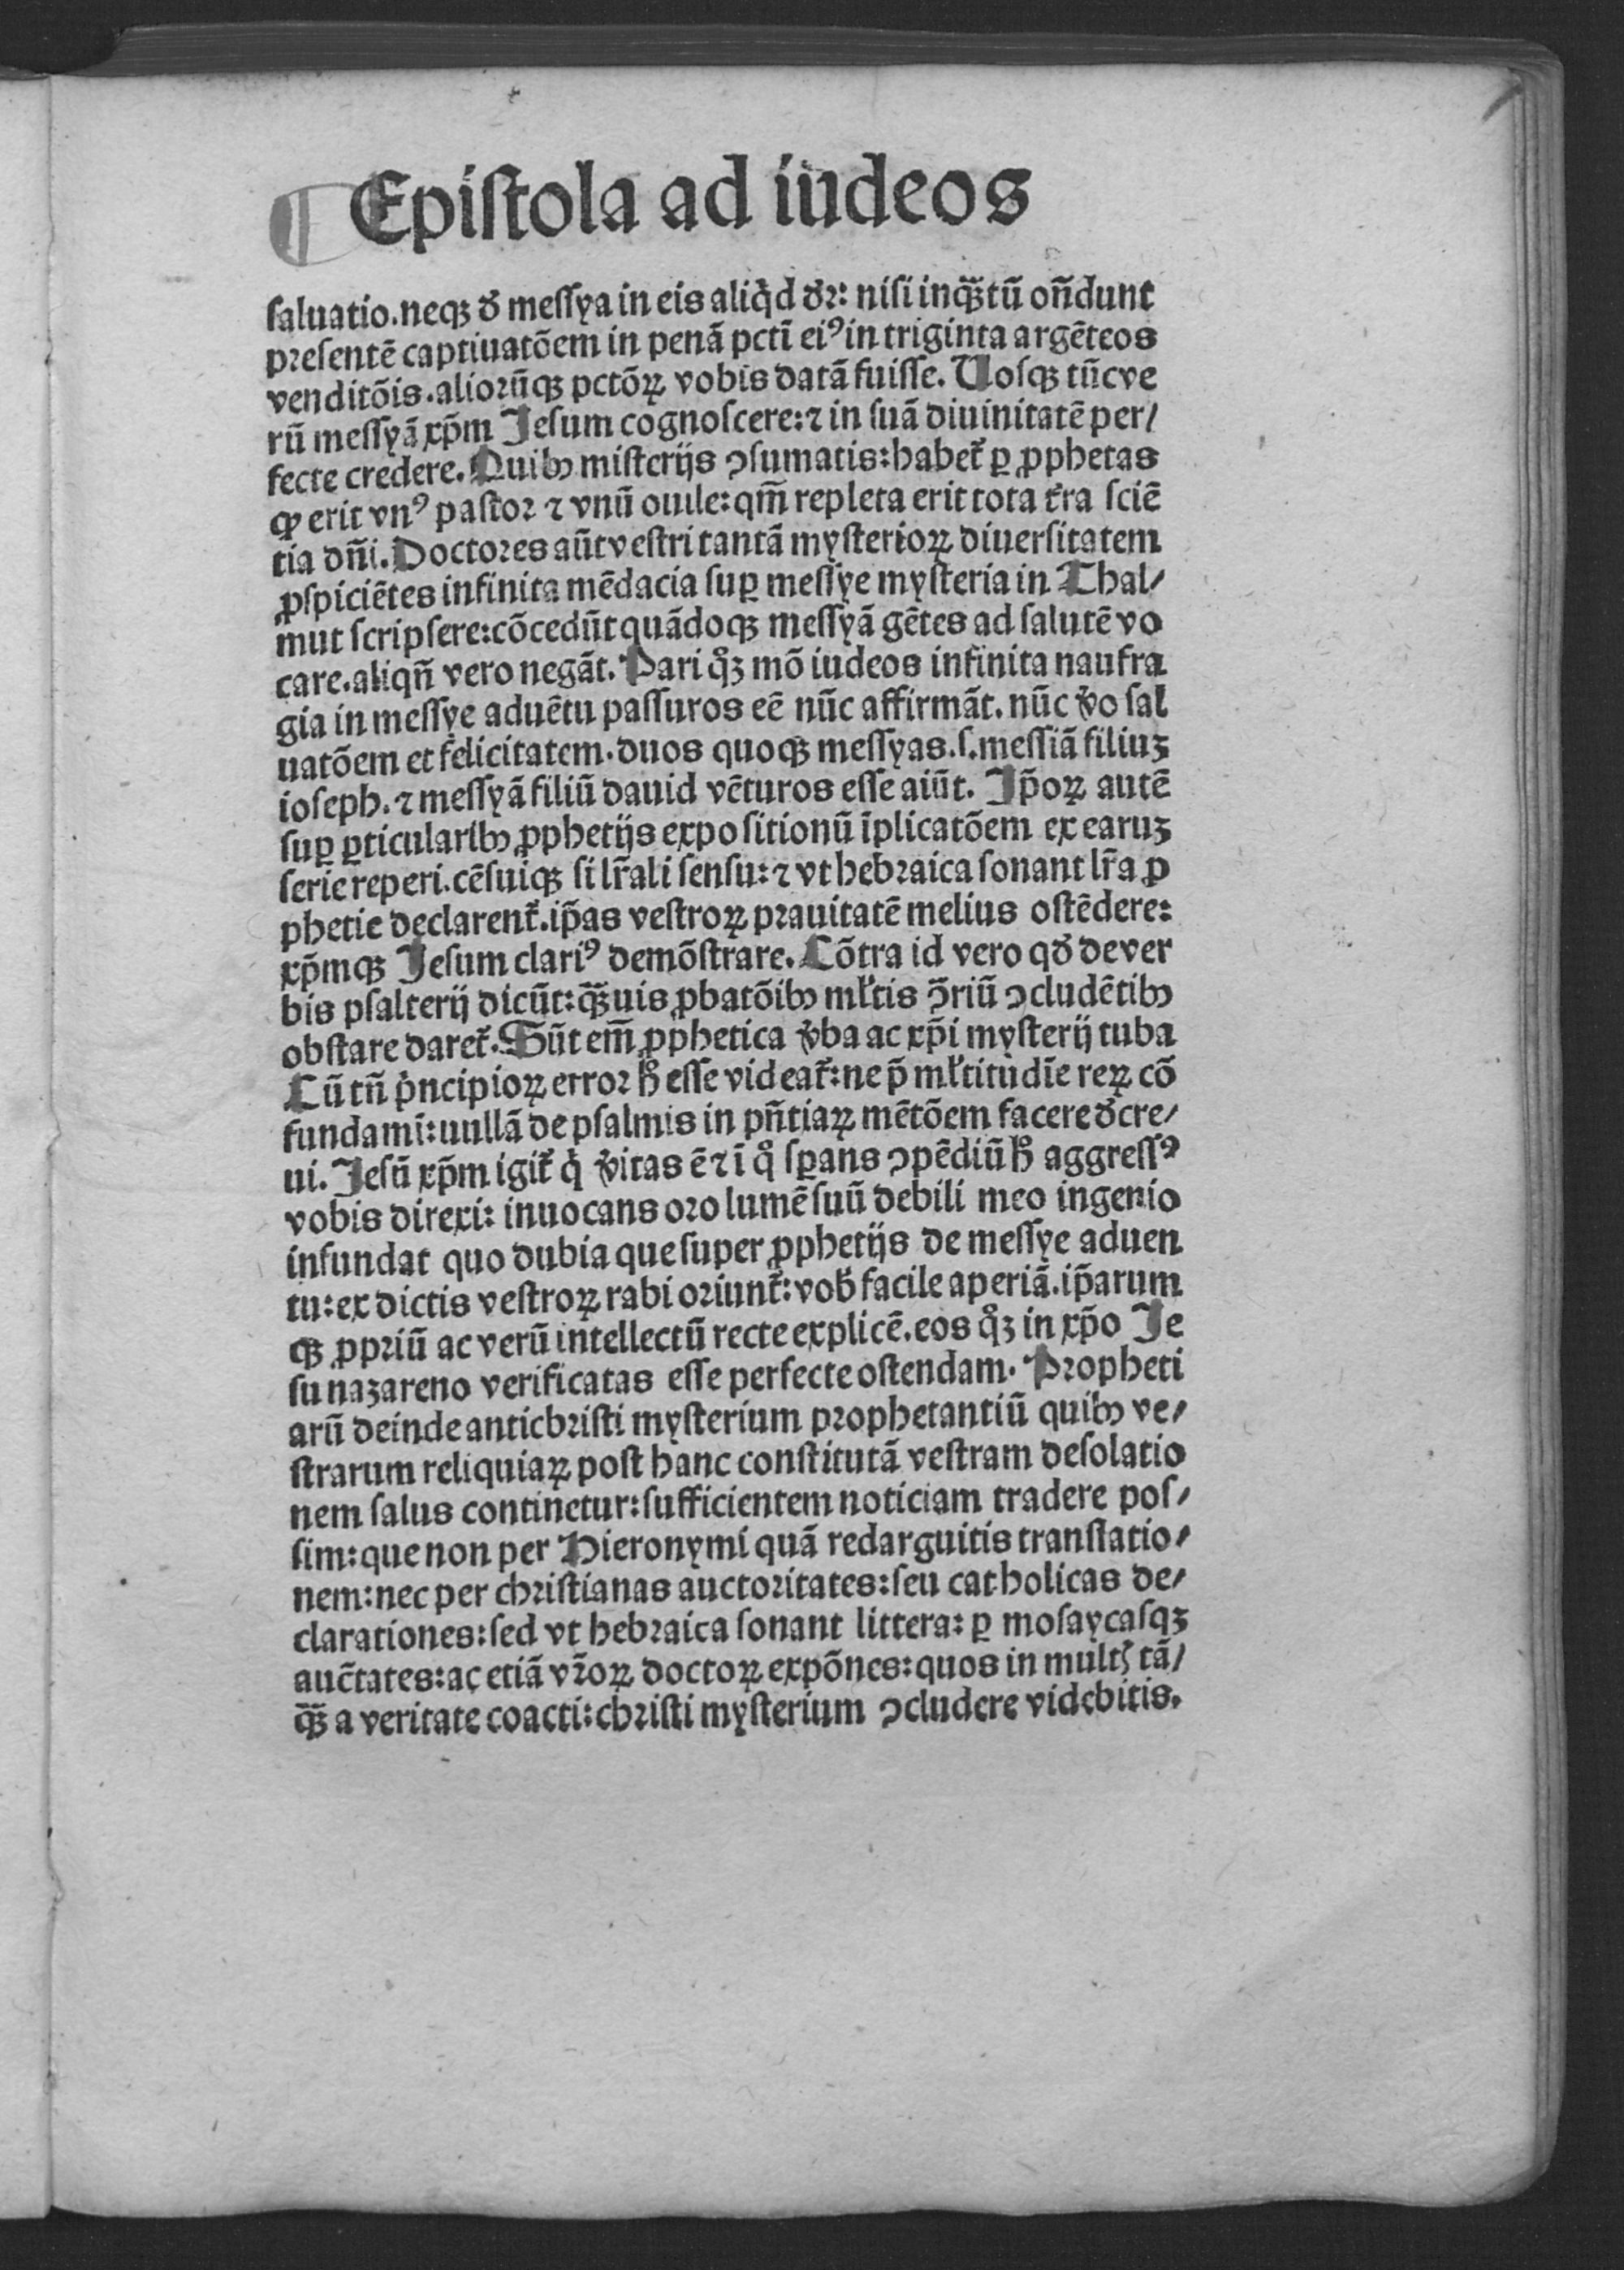 ¶ Epiſtola ad iudeos
ſaluatio.neqꝫ ð meſſya in eis aliq̇d ðꝛ: niſi inqꝫ̄tū on̄dunt
preſentē captiuatōem in penā pctī ei⁹ in triginta argēteos
venditōis.aliorūqꝫ pctōꝝ vobis datā fuiſſe. Uoſqꝫ tūc ve
rū meſſyā xp̄m Jeſum cognoſcere:⁊ in ſuā diuinitatē per/
fecte credere. Quibꝫ miſterijs ↄſumatis:habet᷑ ꝑ ꝓphetas
ꝙ erit vn⁹ paſtor ⁊ vnū ouile:qm̄ repleta erit tota t᷑ra ſciē
tia dn̄i. Doctores aūt veſtri tantā myſterioꝝ diuerſitatem
ꝓſpiciētes infinita mēdacia ſuꝑ meſſye myſteria in Thal/
mut ſcripſere:cōcedūt quādoqꝫ meſſyā gētes ad ſalutē vo
care.aliqn̄ vero negāt. Pari qͦꝫ mō iudeos infinita naufra
gia in meſſye aduētu paſſuros eē nūc affirmāt. nūc v̓o ſal
uatōem et felicitatem. duos quoqꝫ meſſyas.ſ.meſſiā filiuꝫ
ioſeph. ⁊ meſſyā filiū dauid vēturos eſſe aiūt. Jp̄oꝝ autē
ſuꝑ ꝑticularibꝫ ꝓphetijs expoſitionū īplicatōem ex earuꝫ
ſerie reperi.cēſuiqꝫ ſi lr̄ali ſenſu:⁊ vt hebraica ſonant lr̄a ꝓ
phetie declarent᷑.ip̄as veſtroꝝ prauitatē melius oſtēdere:
xp̄mqꝫ Jeſum clari⁹ demōſtrare. Cōtra id vero qð de ver
bis pſalterij dicūt:qꝫ̄uis ꝓbatōibꝫ ml̓tis ↄ̄riū ↄcludētibꝫ
obſtare daret᷑. Sūt em̄ ꝓphetica v̓ba ac xp̄i myſterij tuba
Cū tn̄ pͥncipioꝝ error ħ eſſe videat᷑:ne p̄ ml̓titudīe reꝝ cō
fundamī:uullā de pſalmis in pn̄tiaꝝ mētōem facere ðcre/
ui. Jeſū xp̄m igit᷑ q̇ v̓itas ē ⁊ ī qͦ ſꝑans ↄpēdiū ħ aggreſſ⁹
vobis direxi: inuocans oro lumē ſuū debili meo ingenio
infundat quo dubia que ſuper ꝓphetijs de meſſye aduen
tu:ex dictis veſtroꝝ rabi oriunt᷑:vob̓ facile aperiā.ip̄arum
qꝫ ꝓpriū ac verū intellectū recte explicē.eos qͦꝫ in xp̄o Je
ſu nazareno verificatas eſſe perfecte oſtendam. Propheti
arū deinde antichriſti myſterium prophetantiū quibꝫ ve/
ſtrarum reliquiaꝝ poſt hanc conſtitutā veſtram deſolatio
nem ſalus continetur:ſufficientem noticiam tradere poſ/
ſim:que non per Hieronymi quā redarguitis tranſlatio/
nem:nec per chriſtianas auctoritates:ſeu catholicas de/
clarationes:ſed vt hebraica ſonant littera: ꝑ moſaycaſqꝫ
auc̄tates:ac etiā vr̄oꝝ doctoꝝ expōnes:quos in multꝭ tā/
qꝫ̄ a veritate coacti:chriſti myſterium ↄcludere videbitis.